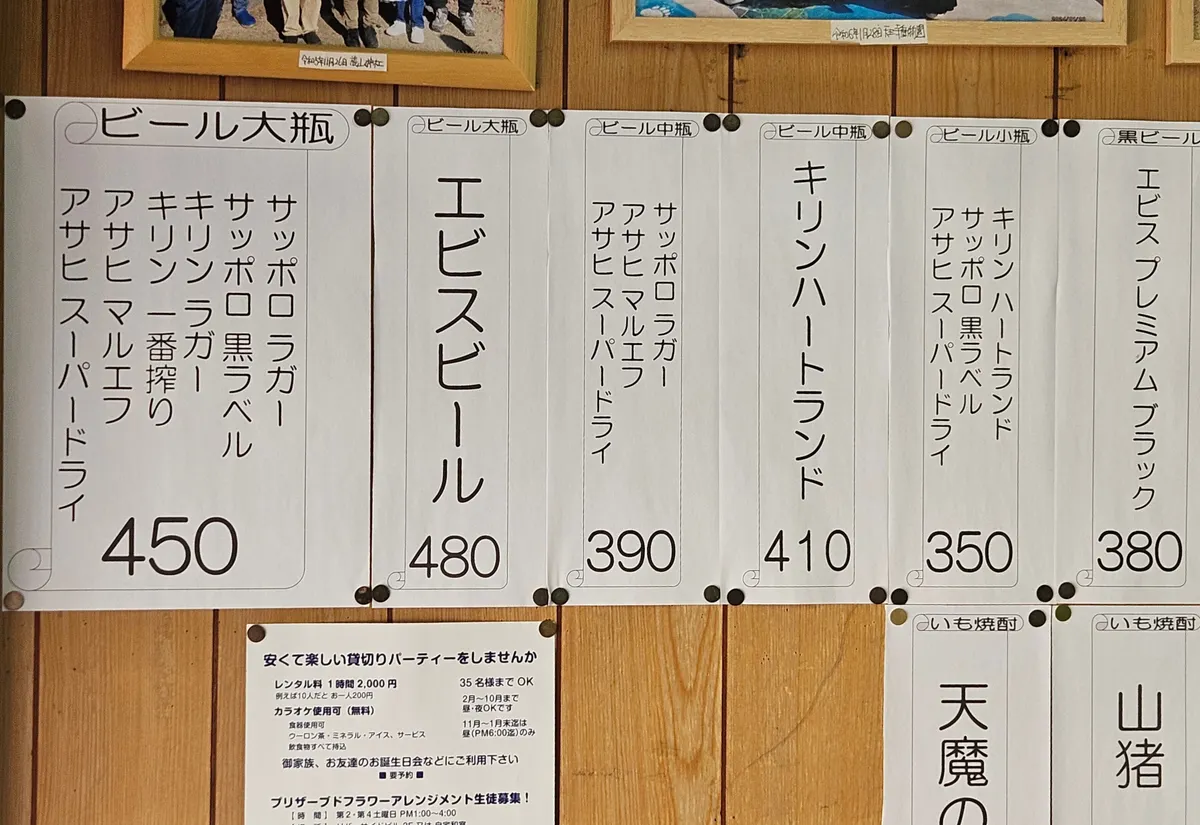 ビール大瓶
サッポロ ラガー
サッポロ 黒ラベル
キリン ラガー
キリン 一番搾り
アサヒ マルエフ
アサヒ スーパードライ
450
ビール大瓶
エビスビール
480
ビール中瓶
サッポロ ラガー
アサヒ マルエフ
アサヒ スーパードライ
390
ビール中瓶
キリンハートランド
410
ビール小瓶
キリン ハートランド
サッポロ 黒ラベル
アサヒ スーパードライ
350
黒ビール
エビス プレミアム ブラック
380
安くて楽しい貸切りパーティーをしませんか
レンタル料 1時間 2,000 円
例えば10人だと お一人200円
カラオケ使用可（無料）
食器使用可
ウーロン茶・ミネラル・アイス、サービス
飲食物すべて持込
35 名様まで OK
2月～10月まで
昼・夜OKです
11月～1月末迄は
昼(PM6:00迄)のみ
御家族、お友達のお誕生日会などにご利用下さい
■ 要予約 ■
プリザーブドフラワーアレンジメント生徒募集！
【 時　間 】 第2・第4土曜日 PM1:00～4:00
いも焼酎
天魔の
いも焼酎
山猪